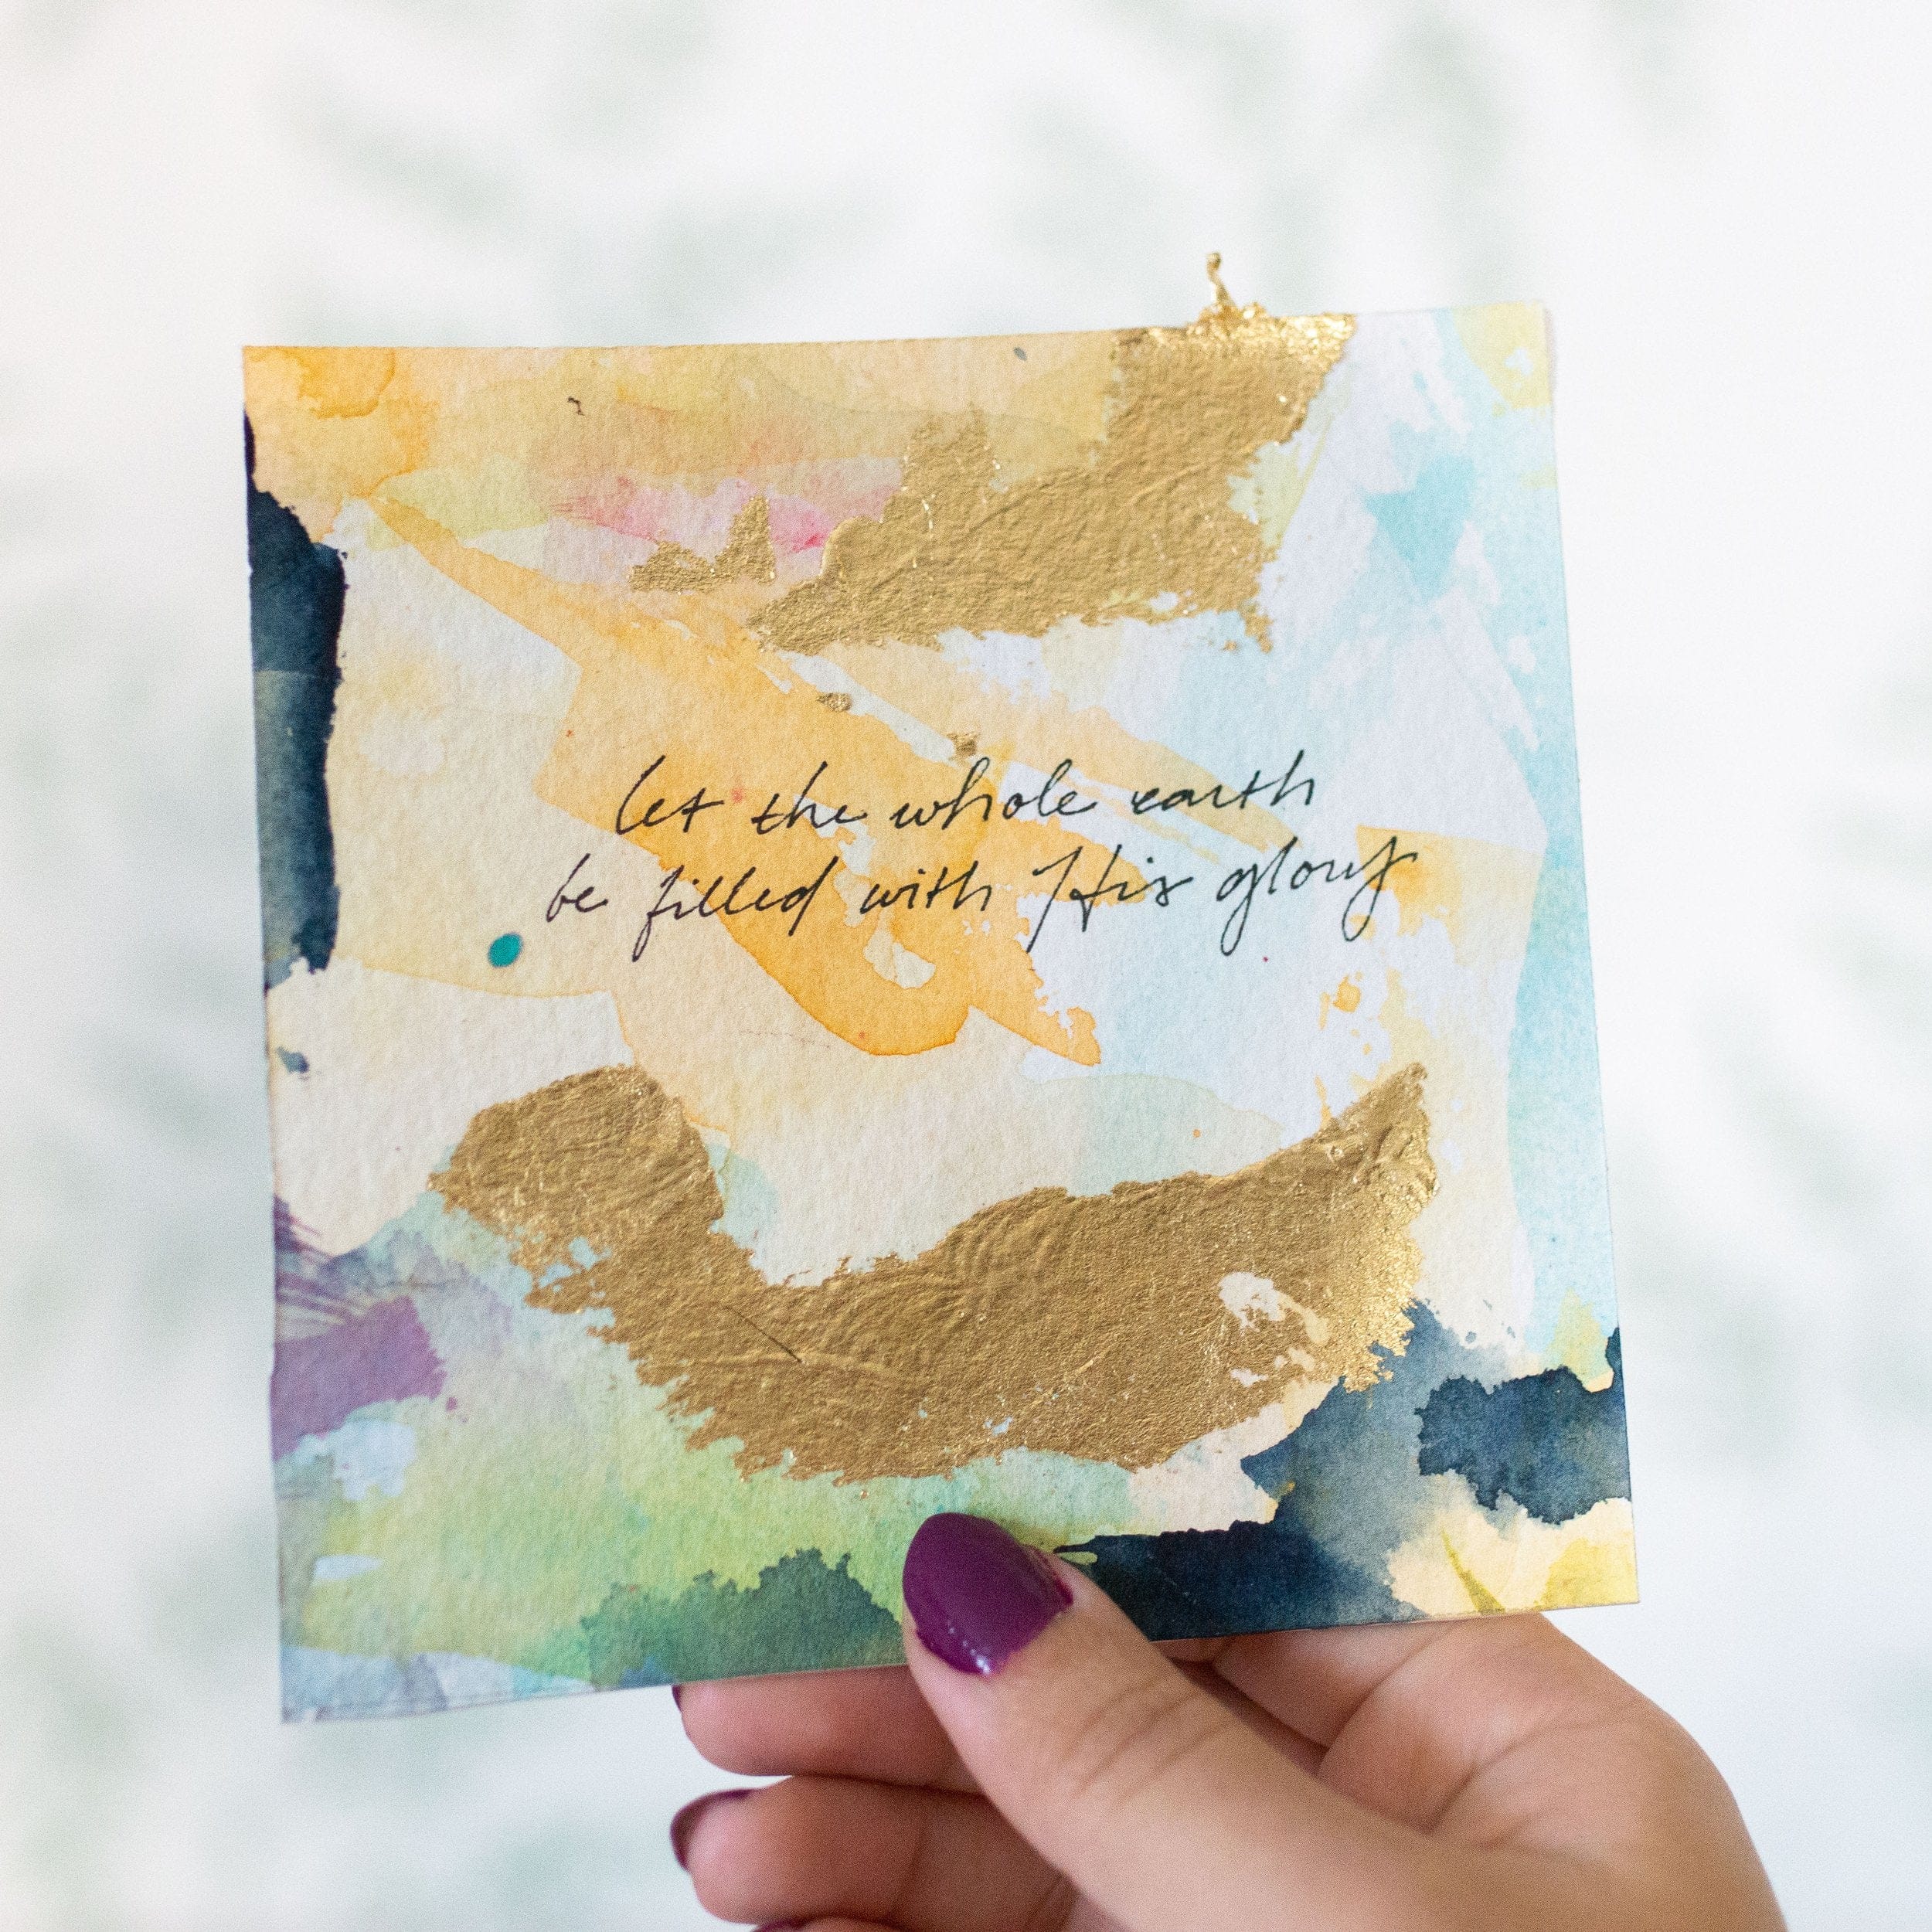 let the whole earth
be filled with His glory